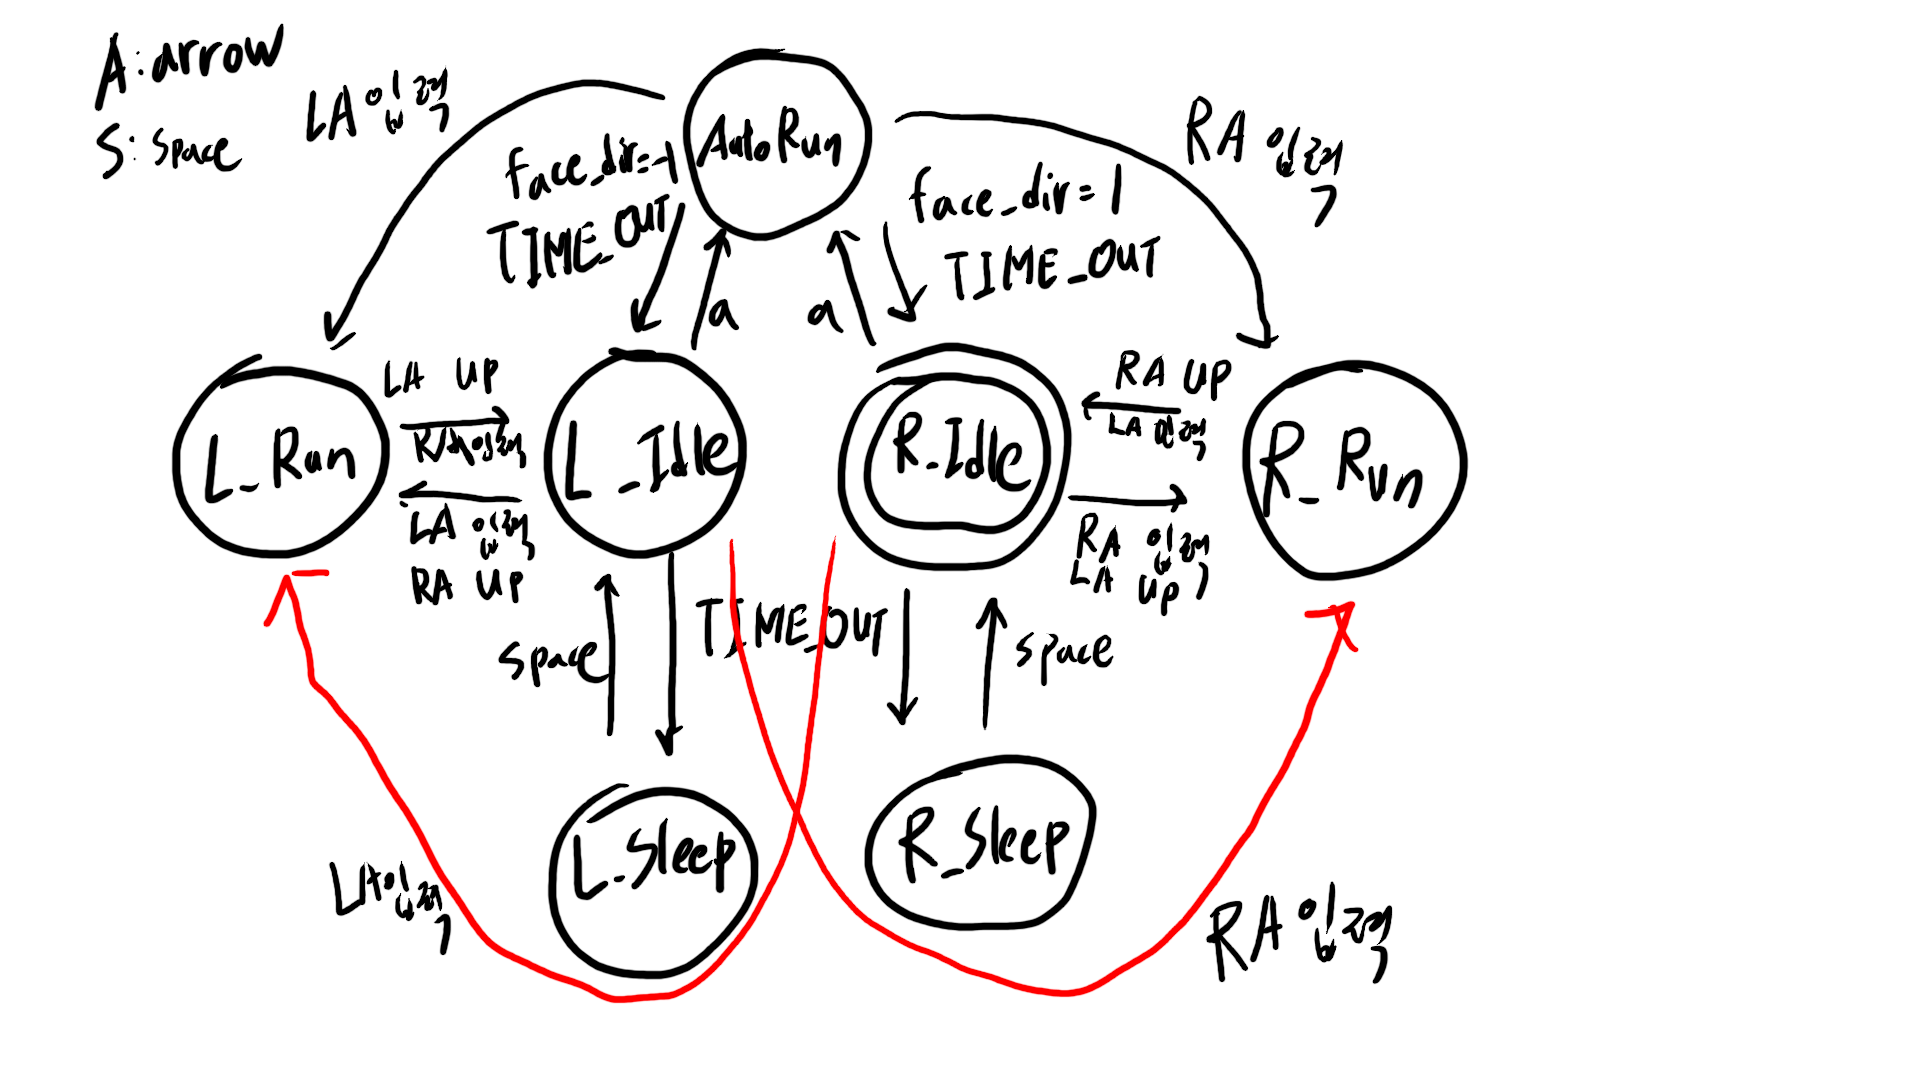 A: arrow
S: space
LA 입력
AutoRun
RA 입력
face_dir=-1
TIME_OUT
face_dir=1
TIME_OUT
a
a
L_Run
LA UP
RA 입력
LA 입력
RA UP
L_Idle
R_Idle
RA UP
LA 입력
RA 입력
LA UP
R_Run
space
TIME_OUT
space
L_Sleep
R_Sleep
LA 입력
RA 입력